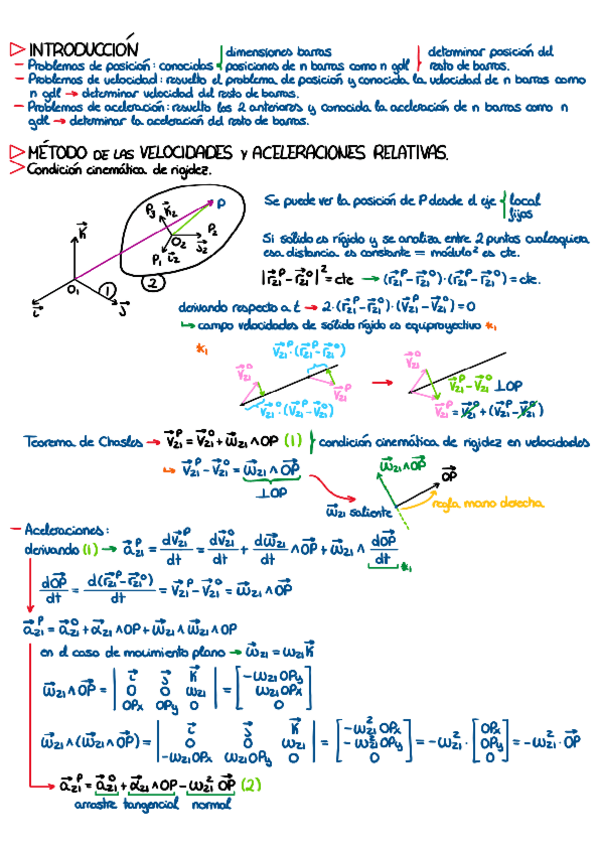 ▷ INTRODUCCIÓN
- Problemas de posición: conocidas { dimensiones barras posiciones de n barras como n gdl } determinar posición del resto de barras.
- Problemas de velocidad: resuelto el problema de posición y conocida la velocidad de n barras como
n gdl → determinar velocidad del resto de barras.
- Problemas de aceleración: resuelto los 2 anteriores y conocida la aceleración de n barras como n
gdl → determinar la aceleración del resto de barras.
▷ MÉTODO DE LAS VELOCIDADES Y ACELERACIONES RELATIVAS.
> Condición cinemática de rigidez.
P
Py k⃗2
P2
O2
j⃗2
P1 i⃗2
2
k⃗
O1
1
i⃗
j⃗
Se puede ver la posición de P desde el eje { local
fijos
Si sólido es rígido y se analiza entre 2 puntos cualesquiera
esa distancia es constante = módulo² es cte.
|r⃗21^P - r⃗21^O|² = cte → (r⃗21^P - r⃗21^O)·(r⃗21^P - r⃗21^O) = cte.
derivando respecto a t → 2·(r⃗21^P - r⃗21^O)·(V⃗21^P - V⃗21^O) = 0
↳ campo velocidades de sólido rígido es equiproyectivo *1
*1
v⃗21^P·(r⃗21^P - r⃗21^O)
v⃗21^O
v⃗21^P
v⃗21^O·(r⃗21^P - r⃗21^O)
→
v⃗21^O
v⃗21^P - v⃗21^O ⊥ OP
v⃗21^P = v⃗21^O + (v⃗21^P - v⃗21^O)
Teorema de Chasles → v⃗21^P = v⃗21^O + ω⃗21 ∧ OP (1) } condición cinemática de rigidez en velocidades
↳ v⃗21^P - v⃗21^O = ω⃗21 ∧ OP⃗
⊥ OP
ω⃗21 ∧ OP⃗
OP⃗
ω⃗21 saliente
regla mano derecha
- Aceleraciones:
derivando (1) → a⃗21^P = dv⃗21^P/dt = dv⃗21^O/dt + dω⃗21/dt ∧ OP⃗ + ω⃗21 ∧ dOP⃗/dt
*1
dOP⃗/dt = d(r⃗21^P - r⃗21^O)/dt = v⃗21^P - v⃗21^O = ω⃗21 ∧ OP⃗
a⃗21^P = a⃗21^O + α⃗21 ∧ OP + ω⃗21 ∧ ω⃗21 ∧ OP
en el caso de movimiento plano → ω⃗21 = ω21 k⃗
ω⃗21 ∧ OP⃗ = | i⃗ j⃗ k⃗ ; 0 0 ω21 ; OPx OPy 0 | = [ -ω21 OPy ; ω21 OPx ; 0 ]
ω⃗21 ∧ (ω⃗21 ∧ OP⃗) = | i⃗ j⃗ k⃗ ; 0 0 ω21 ; -ω21 OPx ω21 OPy 0 | = [ -ω²21 OPx ; -ω²21 OPy ; 0 ] = -ω²21 · [ OPx ; OPy ; 0 ] = -ω²21 · OP⃗
a⃗21^P = a⃗21^O + α⃗21 ∧ OP - ω²21 OP⃗ (2)
arrastre tangencial normal